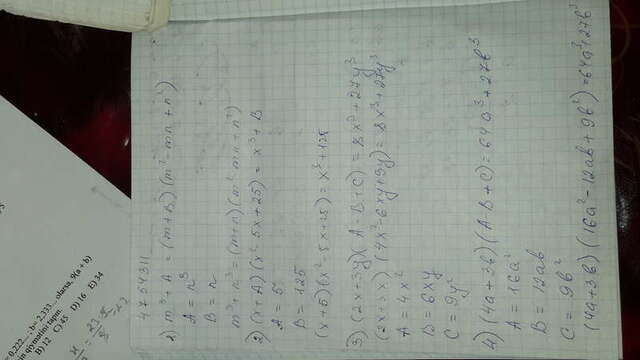 4754311
1) m³ + A = (m+B)(m² - mn + n²)
A = n³
B = n
m³ + n³ = (m+n)(m² - mn + n²)
2) (x+A)(x² - 5x + 25) = x³ + B
A = 5
B = 125
(x+5)(x² - 5x + 25) = x³ + 125
3) (2x+3y)(A - B + C) = 8x³ + 27y³
(4x² - 6xy + 9y) = 8x³ + 27y³
A = 4x²
B = 6xy
C = 9y²
4) (4a+3b)(A - B + C) = 64a³ + 27b³
A = 16a²
B = 12ab
C = 9b²
(4a+3b)(16a² - 12ab + 9b²) = 64a³ + 27b³
olarsa, 9(a + b)
qiymətini tapın.
B) 12 C) 45 D) 16 E) 34